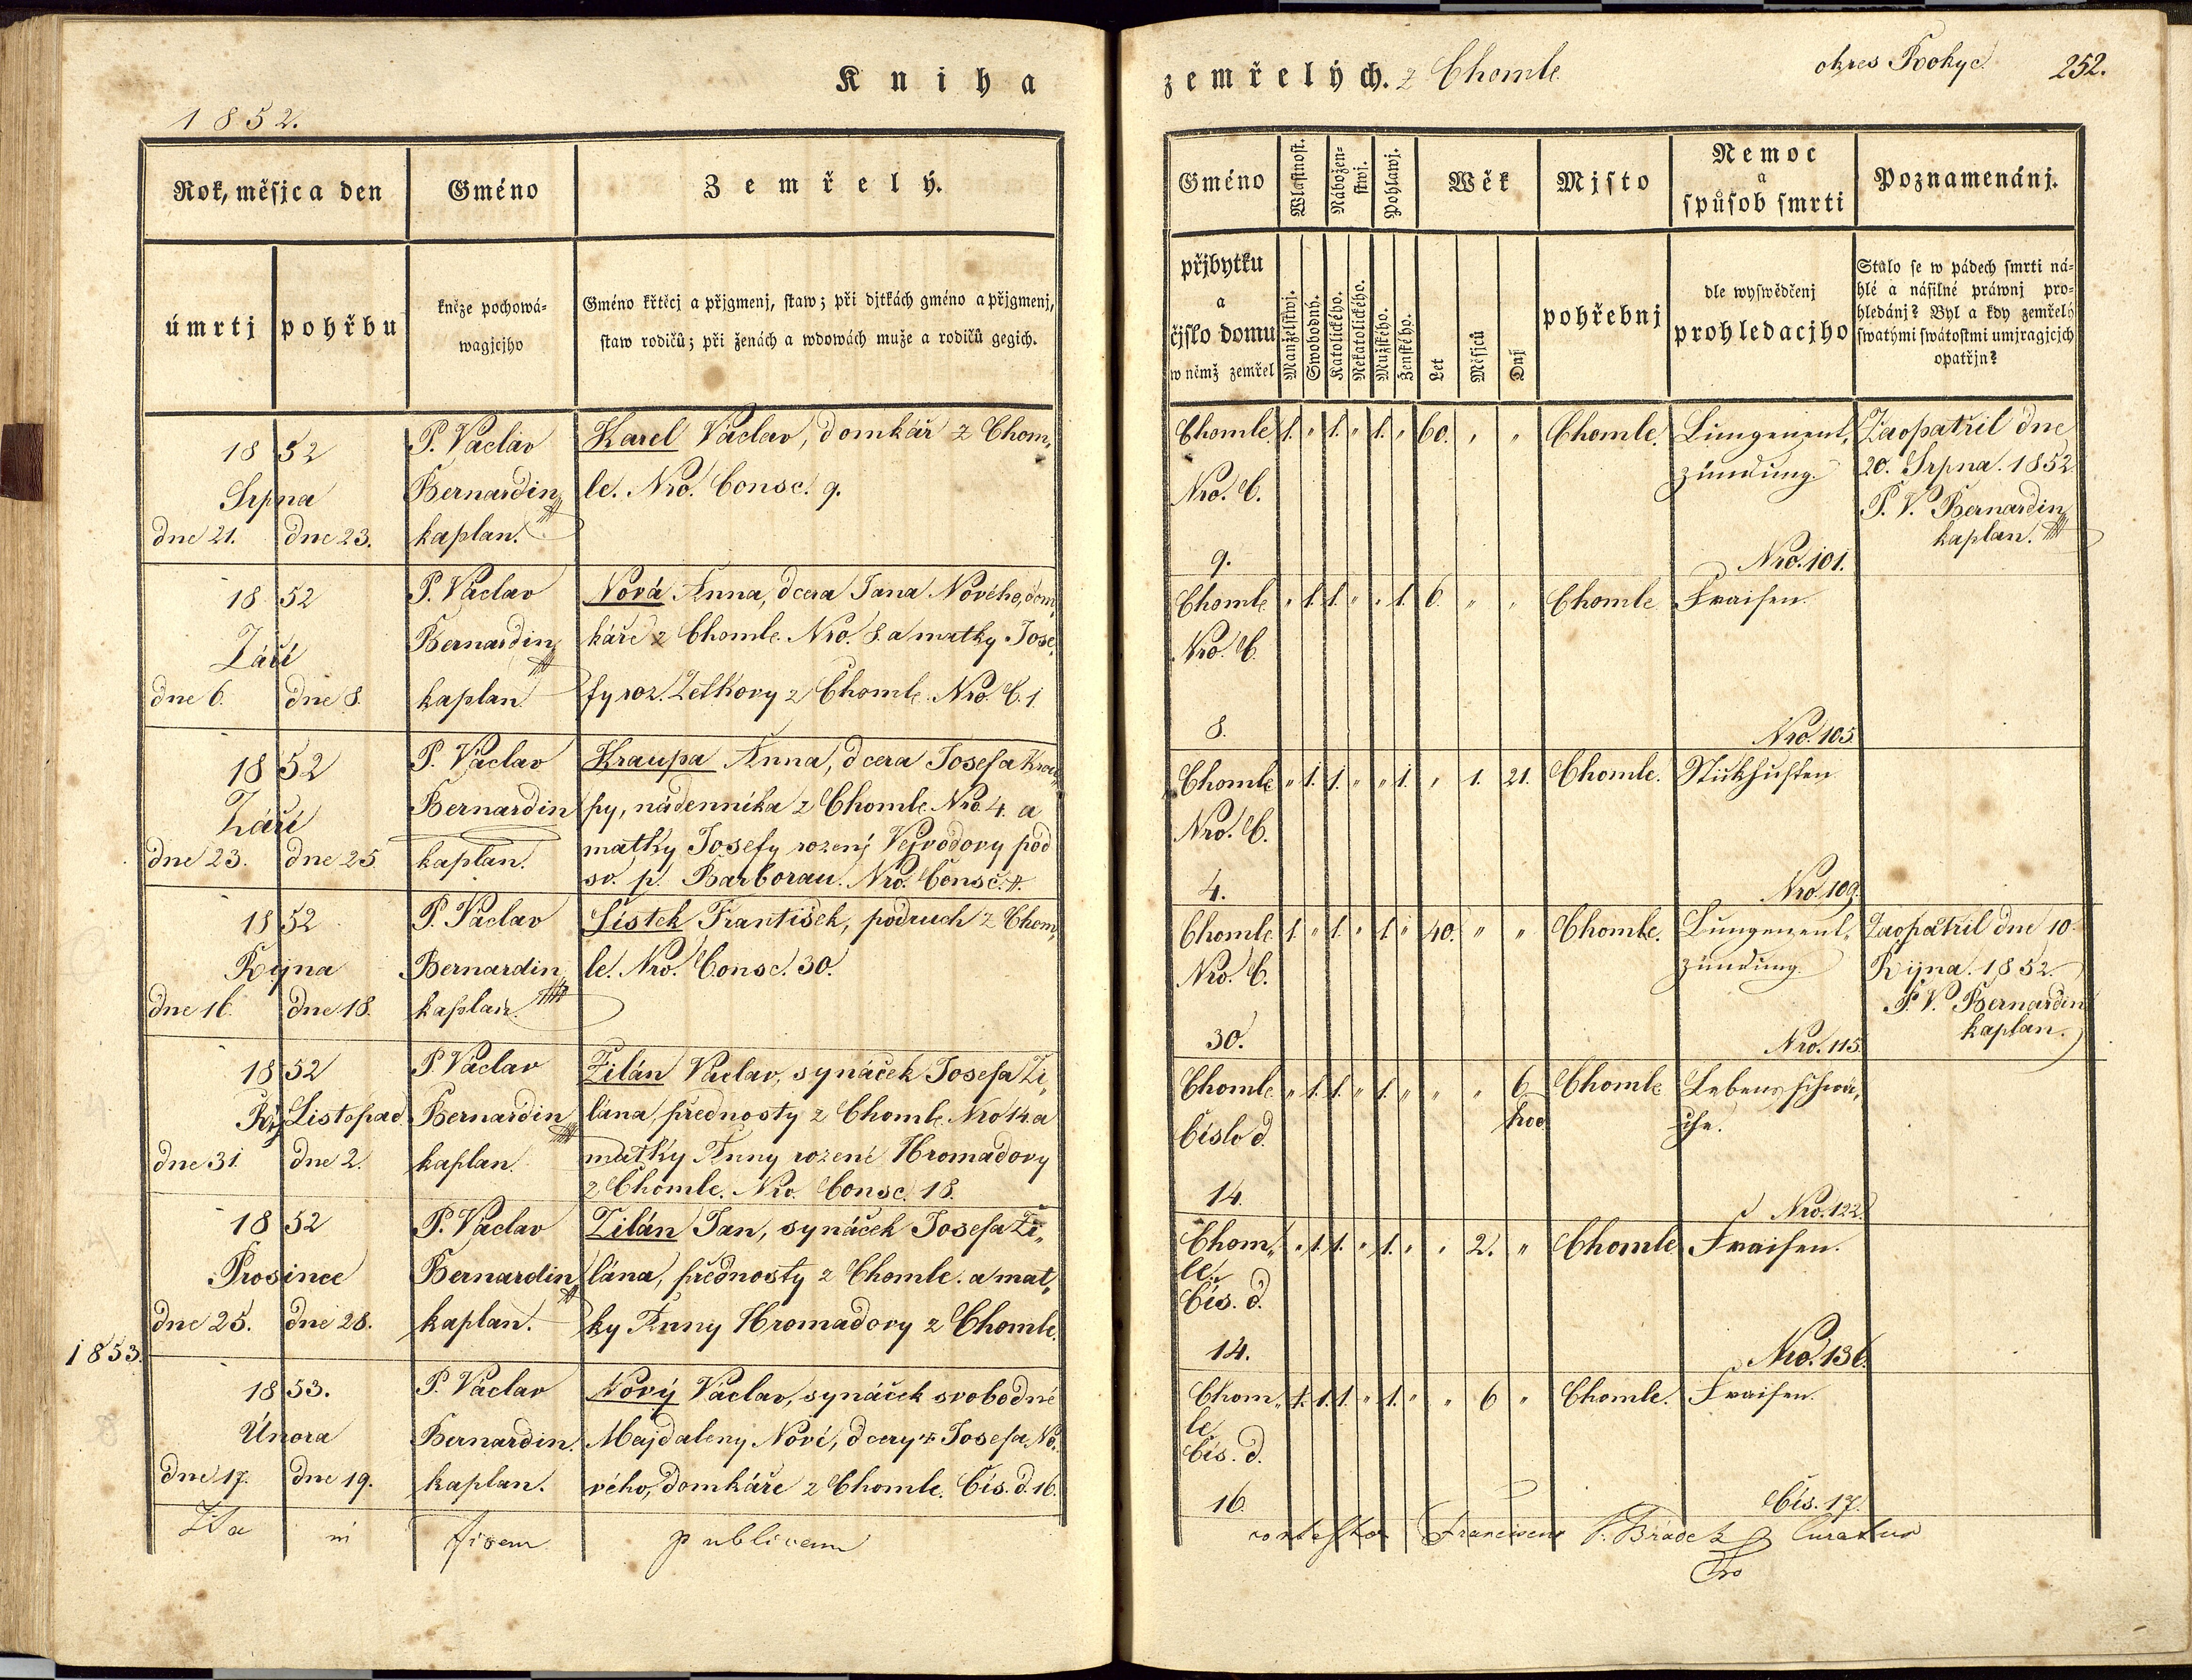 Kniha
1852.
Rok, měsjc a den
Gméno
Zemřelý.
úmrtj
pohřbu
kněze pochowá-
wagjcjho
Gméno křtěcj a přjgmenj, staw; při djtkách gméno a přjgmenj,
staw rodičů; při ženách a wdowách muže a rodičů gegich.
1852
Srpna
dne 21. dne 23.
P. Václav
Bernardin
kaplan.
Karel Václav, domkář z Chom„
le. Nro. Consc. 9.
1852
Září
dne 6. dne 8.
P. Václav
Bernardin
kaplan
Nová Anna, dcera Jana Nového, dom„
káře z Chomle Nro. 8. a matky Jose„
fy roz. Zelkovy z Chomle Nro. C. 1
1852
Září
dne 23. dne 25
P. Václav
Bernardin
kaplan.
Kraupa Anna, dcera Josefa Krau„
py, nádenníka z Chomle Nro 4. a
matky Josefy rozenj Vejvodovy pod
sv. p. Barborau. Nro. Consc. 4.
1852
Října
dne 16. dne 18.
P. Václav
Bernardin
kaplan
Šístek František, podruch z Chom„
le. Nro. Consc. 30.
1852
Říj Listopad
dne 31. dne 2.
P. Václav
Bernardin
kaplan
Žilán Václav, synáček Josefa Ži„
lána, přednosty z Chomle Nro 14. a
matky Anny rozené Hromadovy
z Chomle. Nro Consc. 18.
1852
Prosince
dne 25. dne 28.
P. Václav
Bernardin
kaplan.
Žilán Jan, synáček Josefa Ži„
lána, přednosty z Chomle. a mat„
ky Anny Hromadovy z Chomle.
1853.
1853.
Února
dne 17. dne 19.
P. Václav
Bernardin.
kaplan.
Nový Václav, synáček svobodné
Majdaleny Nové, dcery † Josefa No„
vého, domkáře z Chomle. Čís. d. 16.
Ita in fidem publicam
zemřelých. z Chomle
okres Rokyc.
252.
Gméno
Wlastnost.
Nábožen-
stwj.
Pohlawj.
Wěk
Mjsto
Nemoc
a
spůsob smrti
Poznamenánj.
přjbytku
a
čjslo domu
w němž zemřel
Manželstwj.
Swobodný.
Katolického.
Nekatolického.
Mužského.
Ženského.
Let
Měsjců
Dnj
pohřebnj
dle wyswědčenj
prohledacjho
Stalo se w pádech smrti ná-
hlé a násilné práwnj pro-
hledánj? Byl a kdy zemřelý
swatými swátostmi umjragjcjch
opatřjn?
Chomle. 1. „ 1. „ 1. „ 60. „ „ Chomle. Lungenent„ Zaopatřil dne
Nro. C. zündung. 20. Srpna. 1852
P. V. Bernardin
kaplan.
9. Nro. 101.
Chomle „ 1. 1. „ „ 1. 6. „ „ Chomle Fraisen.
Nro. C.
8. Nro. 105
Chomle „ 1. 1. „ „ 1. „ 1. 21. Chomle. Stickhusten
Nro. C.
4. Nro. 109.
Chomle 1. „ 1. „ 1. „ 40. „ „ Chomle. Lungenent„ Zaopatřil dne 10.
Nro. C. zündung. Října. 1852.
P. V. Bernardin
kaplan.
30. Nro. 115.
Chomle „ 1. 1. „ 1. „ „ „ 6 Chomle Lebensschwä„
hod
Číslo d. che.
14. Nro. 122.
Chom„ „ 1. 1. „ 1. „ „ 2. „ Chomle Fraisen.
le.
Čís. d.
14. Nro. 136.
Chom„ 1. 1. 1. „ 1. „ „ 6 „ Chomle. Fraisen.
le.
Čís. d.
16. Čís. 17.
contestor Franciscus Brádek Curatus